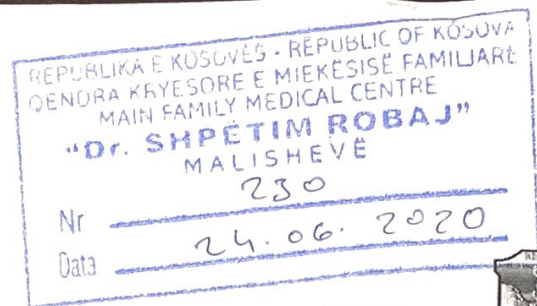 REPUBLIKA E KOSOVËS - REPUBLIC OF KOSOVA
QENDRA KRYESORE E MJEKËSISË FAMILJARE
MAIN FAMILY MEDICAL CENTRE
"Dr. SHPËTIM ROBAJ"
MALISHEVË
230
Nr
Data 24.06.2020